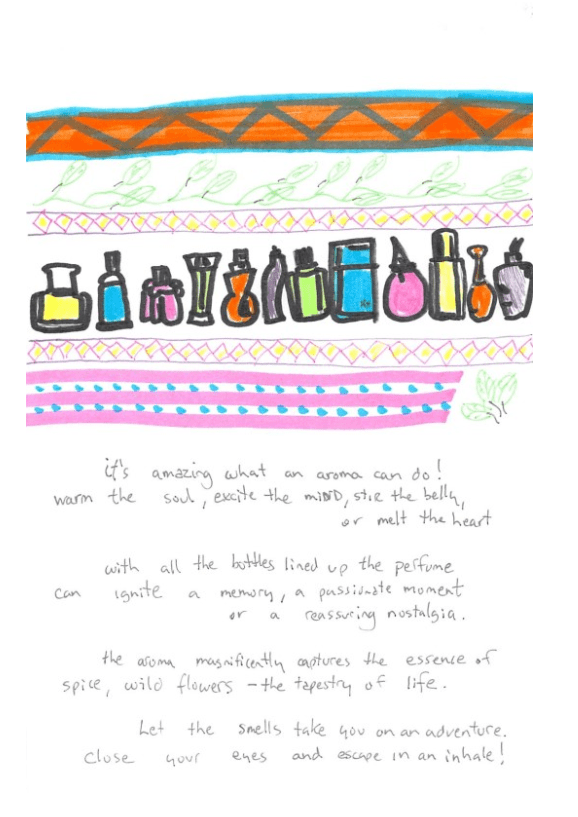 it's amazing what an aroma can do!
warm the soul, excite the mIND, stir the belly,
or melt the heart
with all the bottles lined up the perfume
can ignite a memory, a passionate moment
or a reassuring nostalgia.
the aroma magnificently captures the essence of
spice, wild flowers - the tapestry of life.
Let the smells take you on an adventure.
Close your eyes and escape in an inhale!